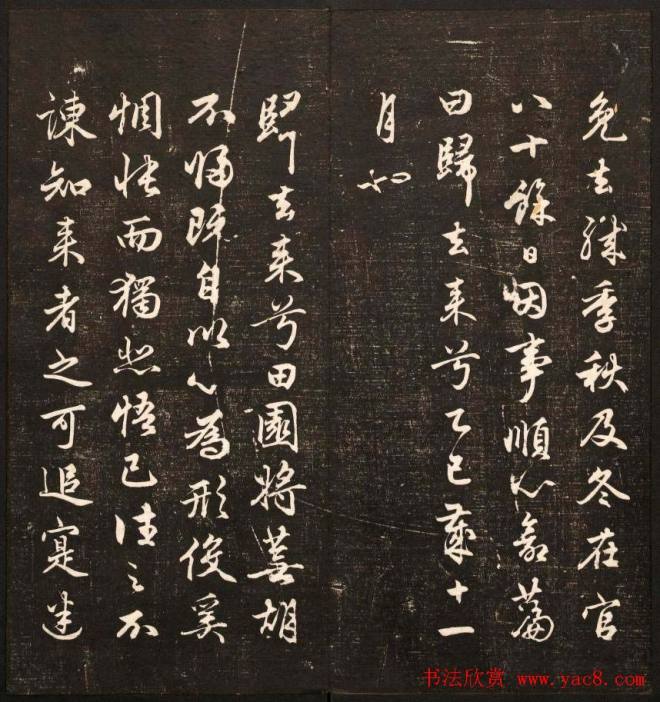 免去職季秋及冬在官
八十餘日因事順心命篇
曰歸去来兮乙巳歲十一
月也
歸去来兮田園將蕪胡
不歸既自以心為形役奚
惆悵而獨悲悟已往之不
諫知来者之可追寔迷
书法欣赏 www.yac8.com